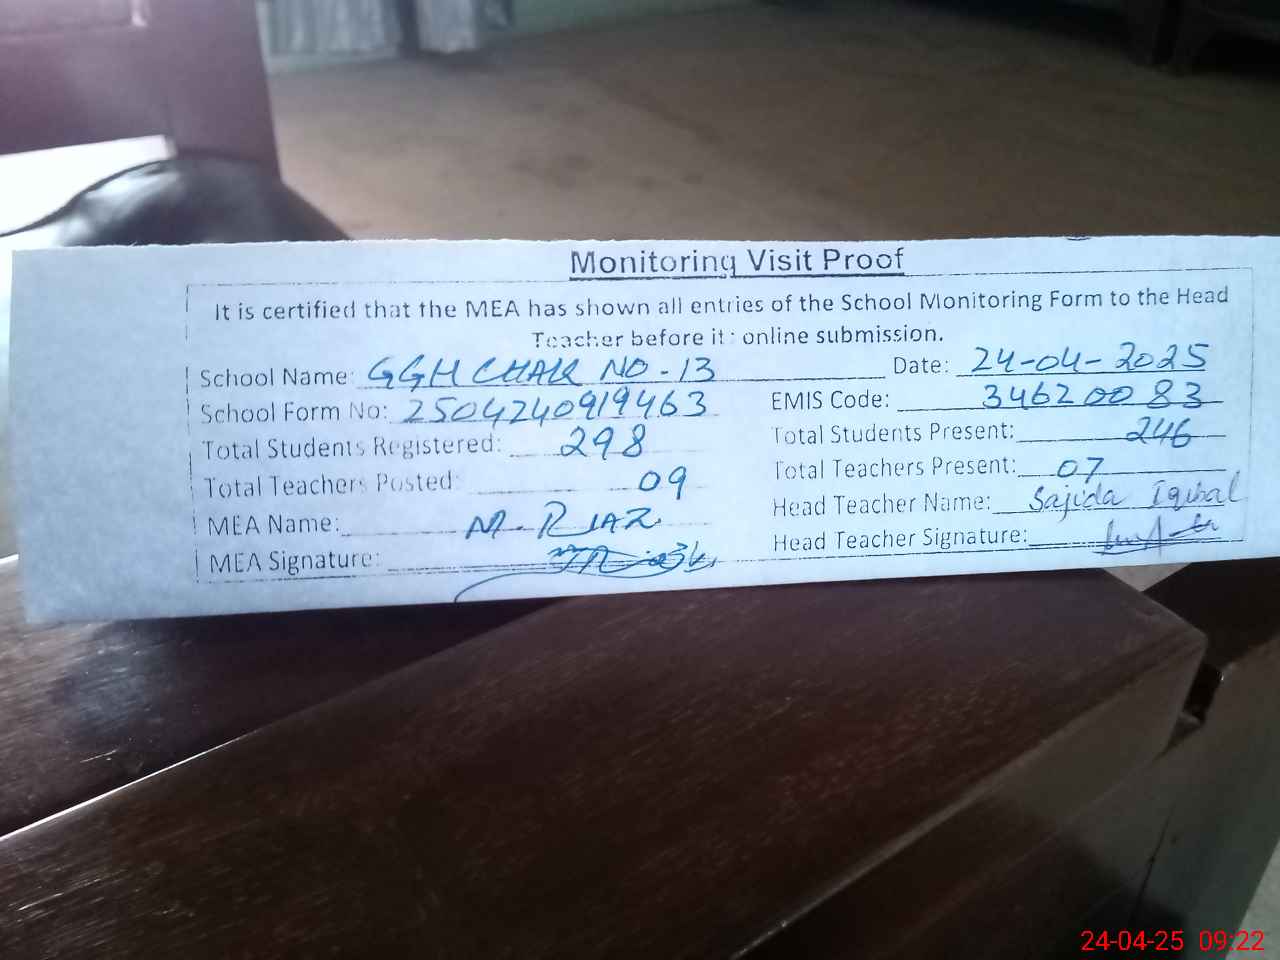 Monitoring Visit Proof
It is certified that the MEA has shown all entries of the School Monitoring Form to the Head
Teacher before it: online submission.
School Name: GGH CHAK NO-13 Date: 24-04-2025
School Form No: 2504240919463 EMIS Code: 34620083
Total Students Registered: 298 Total Students Present: 246
Total Teachers Posted: 09 Total Teachers Present: 07
MEA Name: M. RIAZ Head Teacher Name: Sajida Iqbal
MEA Signature: Head Teacher Signature:
24-04-25 09:22